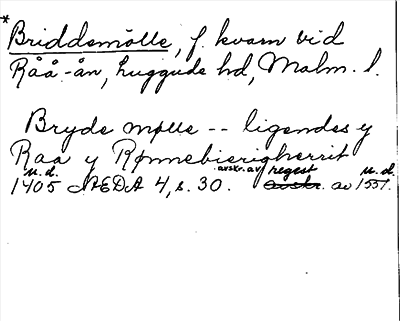 *
Briddsmölle, f. kvarn vid
Råå-ån, Luggude hd, Malm. l.
Bryde mølle -- ligendes y
Raa y Rønnebierigherrit
u.d. avskr. av regest u.d.
1405 AEDA 4, s. 30. avskr. av 1551.